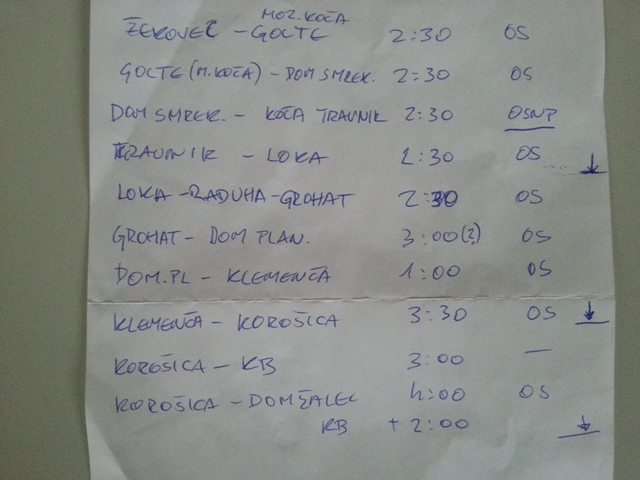 MOZ. KOČA
ŽEKOVEC - GOLTE 2:30 OS
GOLTE (M. KOČA) - DOM SMREK. 2:30 OS
DOM SMREK. - KOČA TRAVNIK 2:30 OSNP
TRAVNIK - LOKA 2:30 OS .... ↓
LOKA - RADUHA - GROHAT 2:30 OS
GROHAT - DOM PLAN. 3:00 (?) OS
DOM. PL - KLEMENČA 1:00 OS
KLEMENČA - KOROŠICA 3:30 OS ↓
KOROŠICA - KB 3:00 —
KOROŠICA - DOMŽALEC 4:00 OS
KB + 2:00 ↓